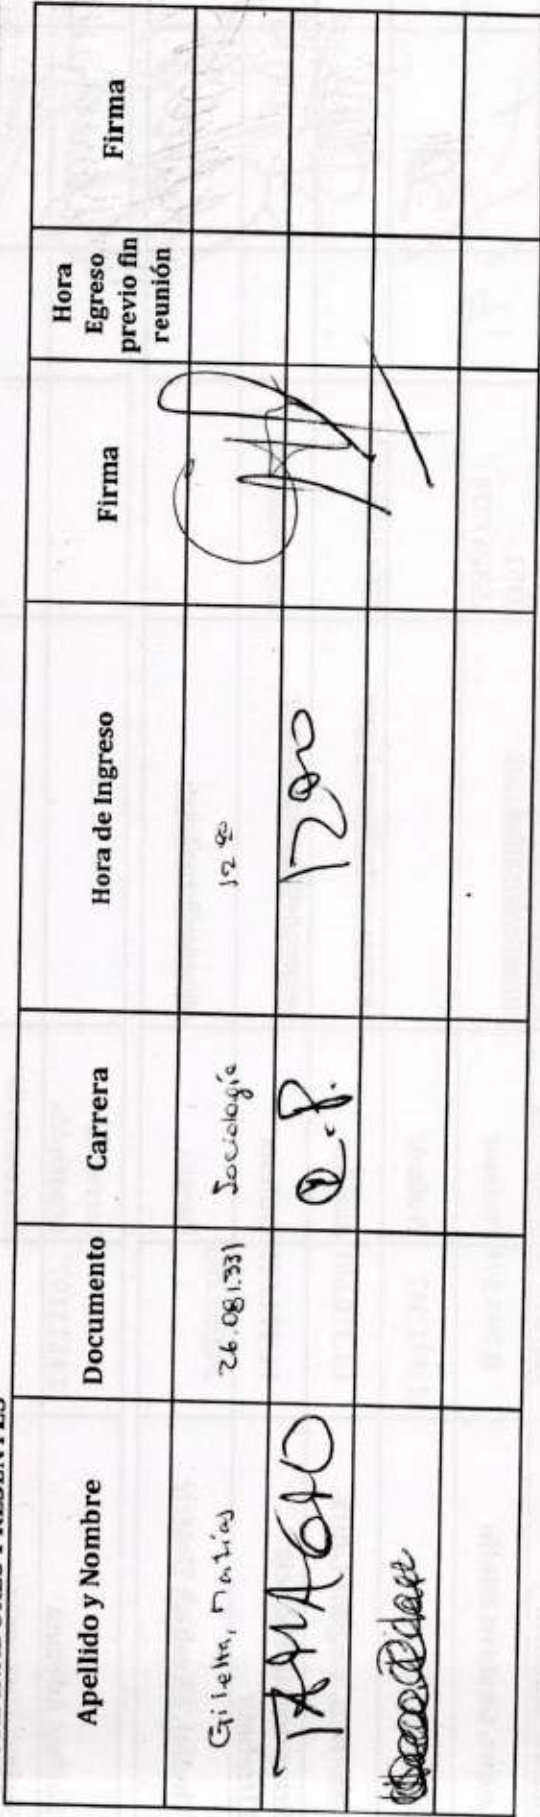 Apellido y Nombre Documento Carrera Hora de Ingreso Firma Hora Egreso previo fin reunión Firma
Giletta, Matías 26.081.331 Sociología 12 00
TAMAGNO C.P. 1200